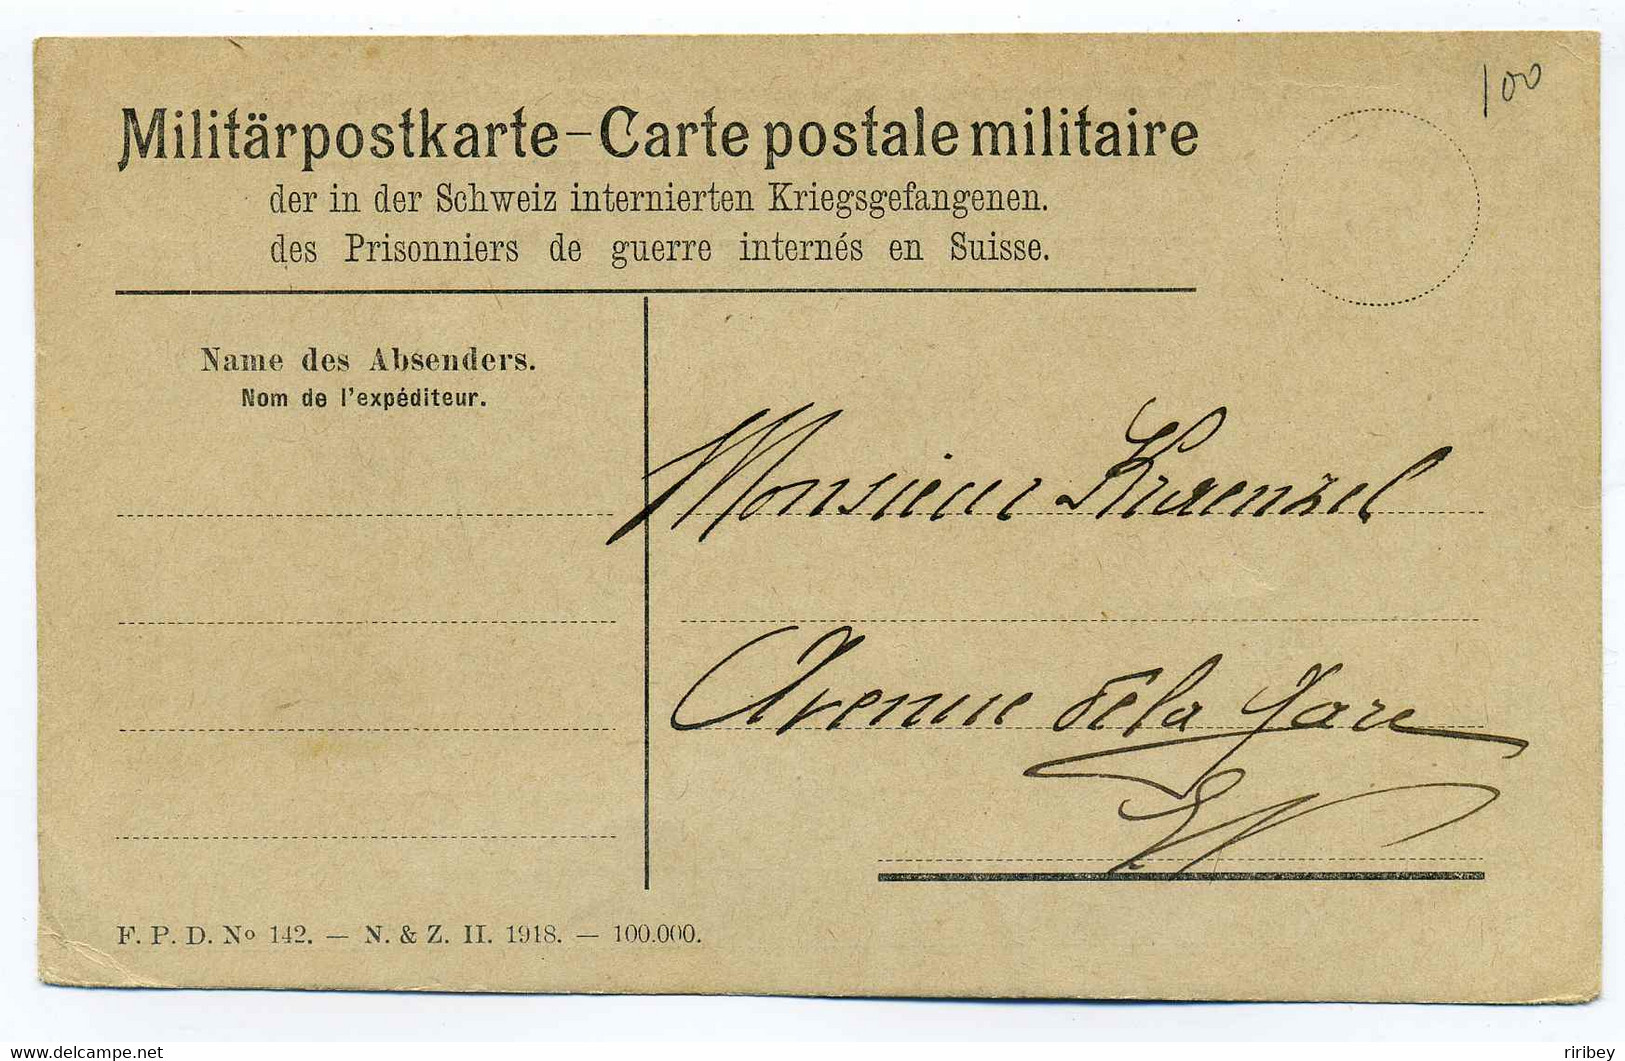 100
Militärpostkarte - Carte postale militaire
der in der Schweiz internierten Kriegsgefangenen.
des Prisonniers de guerre internés en Suisse.
Name des Absenders.
Nom de l'expéditeur.
Monsieur Kraenzel
Avenue de la Gare
F. P. D. Nº 142. — N. & Z. II. 1918. — 100.000.
www.delcampe.net
riribey